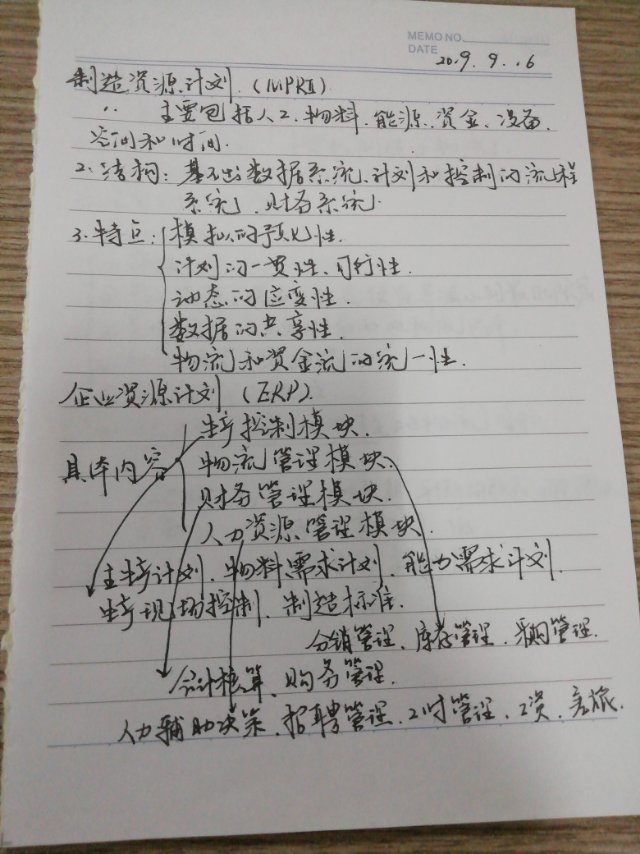 MEMO NO.
DATE
20.9.9.16
制造资源计划.(MPRⅡ)
〃 主要包括人工、物料、能源、资金、设备、
空间和时间.
2.结构:基本出数据系统、计划和控制的流程
系统、财务系统.
3.特点:模拟的预见性.
计划的一贯性、可行性.
动态的应变性.
数据的共享性.
物流和资金流的统一性.
企业资源计划(ERP).
生产控制模块.
具体内容 物流管理模块.
财务管理模块.
人力资源管理模块.
主生产计划、物料需求计划、能力需求计划.
生产现场控制、制造标准.
分销管理、库存管理、采购管理.
会计核算、财务管理.
人力辅助决策、招聘管理、工时管理、工资、差旅.